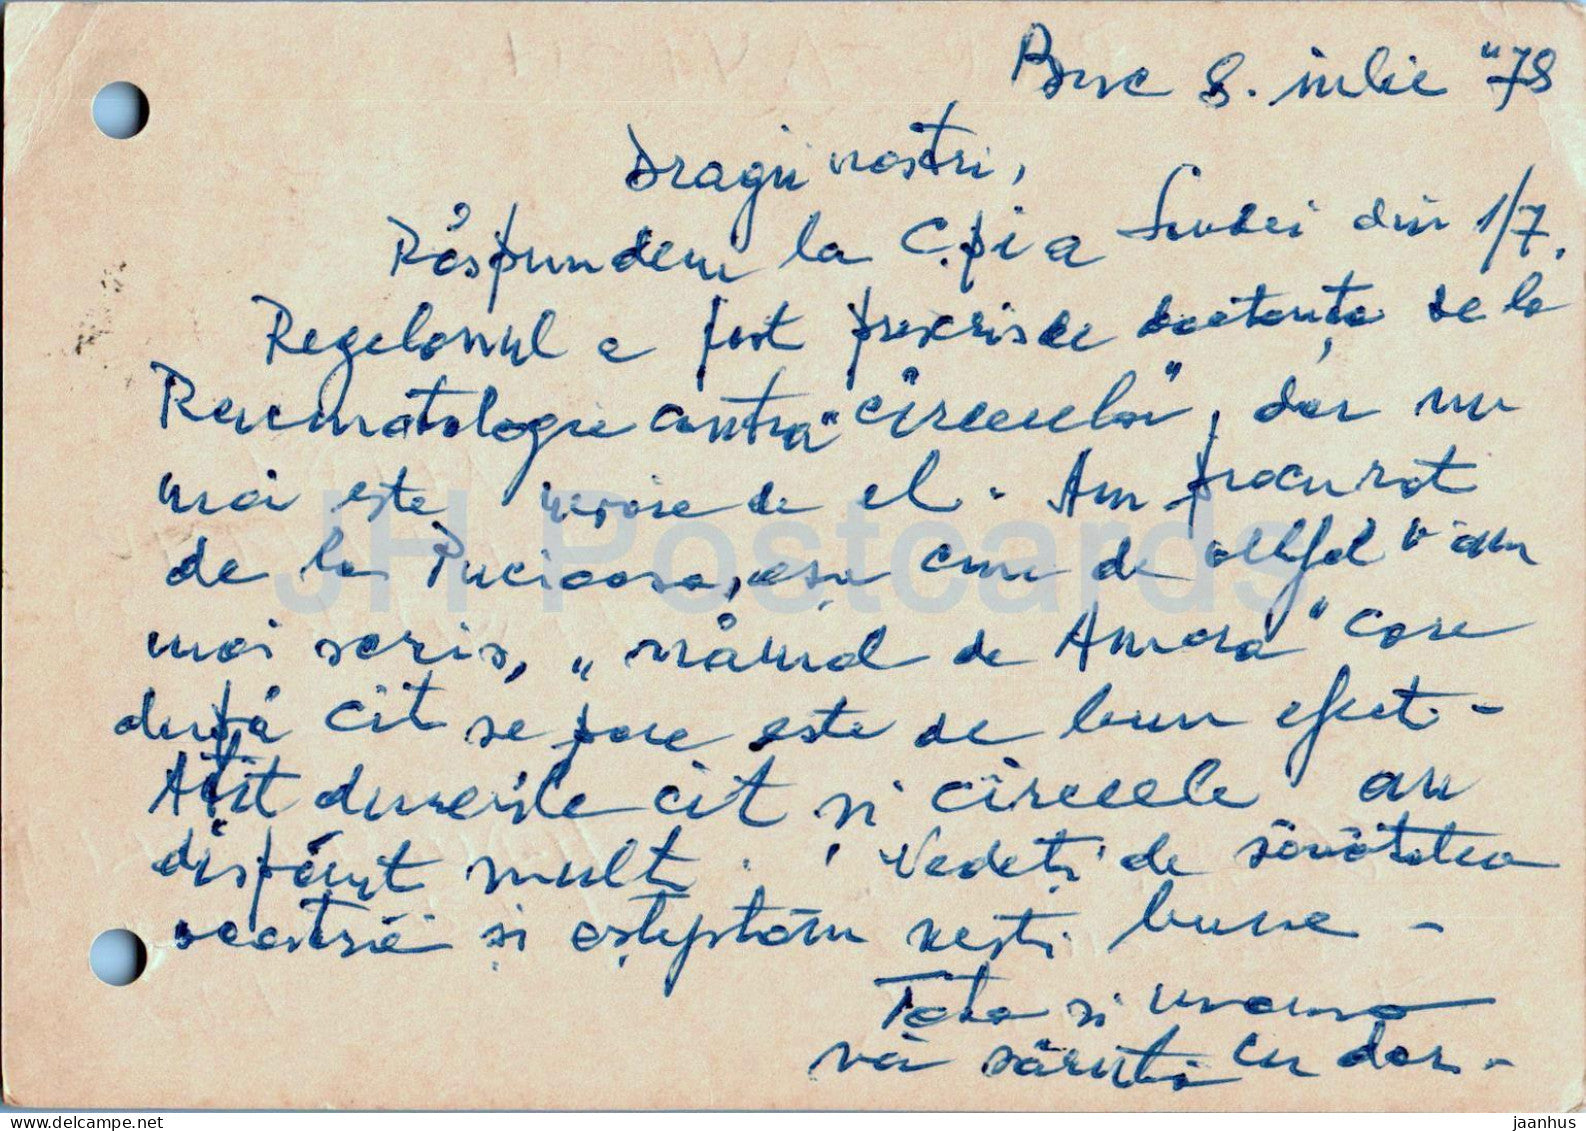 Buc 8. iulie "78
Dragii noștri,
Răspundem la C.p. a din 1/7.
Regelanul a fost prescris de doctorița de la
Reumatologie contra "cîrceelor", dar nu
mai este nevoie de el. Am procurat
de la Pucioasa, așa cum de altfel v-am
mai scris, "nămol de Amara" care
după cît se pare este de bun efect. -
Atît durerile cît și cîrceele au
dispărut mult. Vedeți de sănătatea
voastră și așteptăm vești bune -
Tata și mama
vă sărută cu dor. -
JH Postcards
www.jaanhus.com